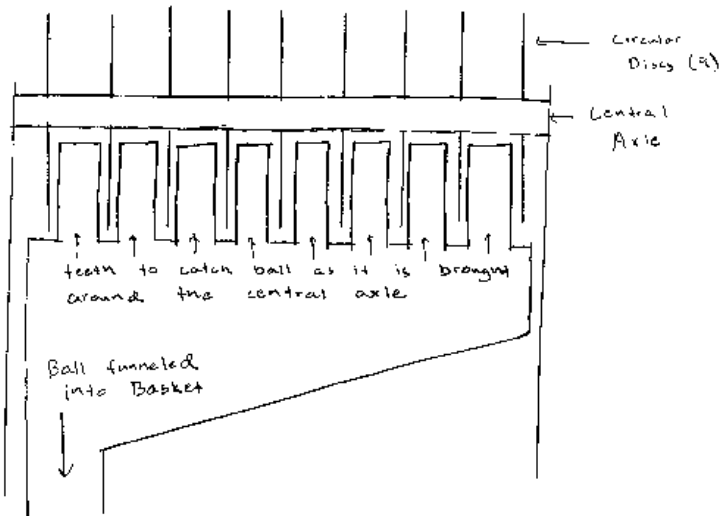 Circular
Discs (9)
Central
Axle
teeth to catch ball as it is brought
around the central axle
Ball funneled
into Basket